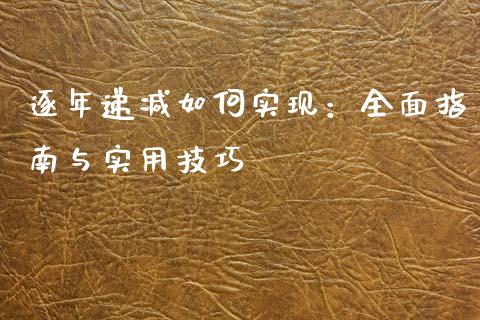 逐年递减如何实现：全面指
南与实用技巧